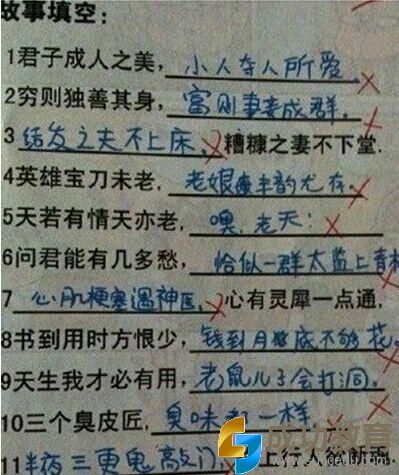 故事填空:
1君子成人之美, 小人夺人所爱 ×
2穷则独善其身, 富则妻妾成群。 ×
3 结发之夫不上床, × 糟糠之妻不下堂.
4英雄宝刀未老, 老娘丰韵尤存。 ×
5天若有情天亦老, 噢,老天! ×
6问君能有几多愁, 恰似一群太监上青楼
7 心肌梗塞遇神医, × 心有灵犀一点通,
8书到用时方恨少, 钱到月底不够花。 ×
9天生我才必有用, 老鼠儿子会打洞。 ×
10三个臭皮匠, 臭味都一样 ×
11半夜三更鬼敲门 × 上行人欲断魂
成功教育